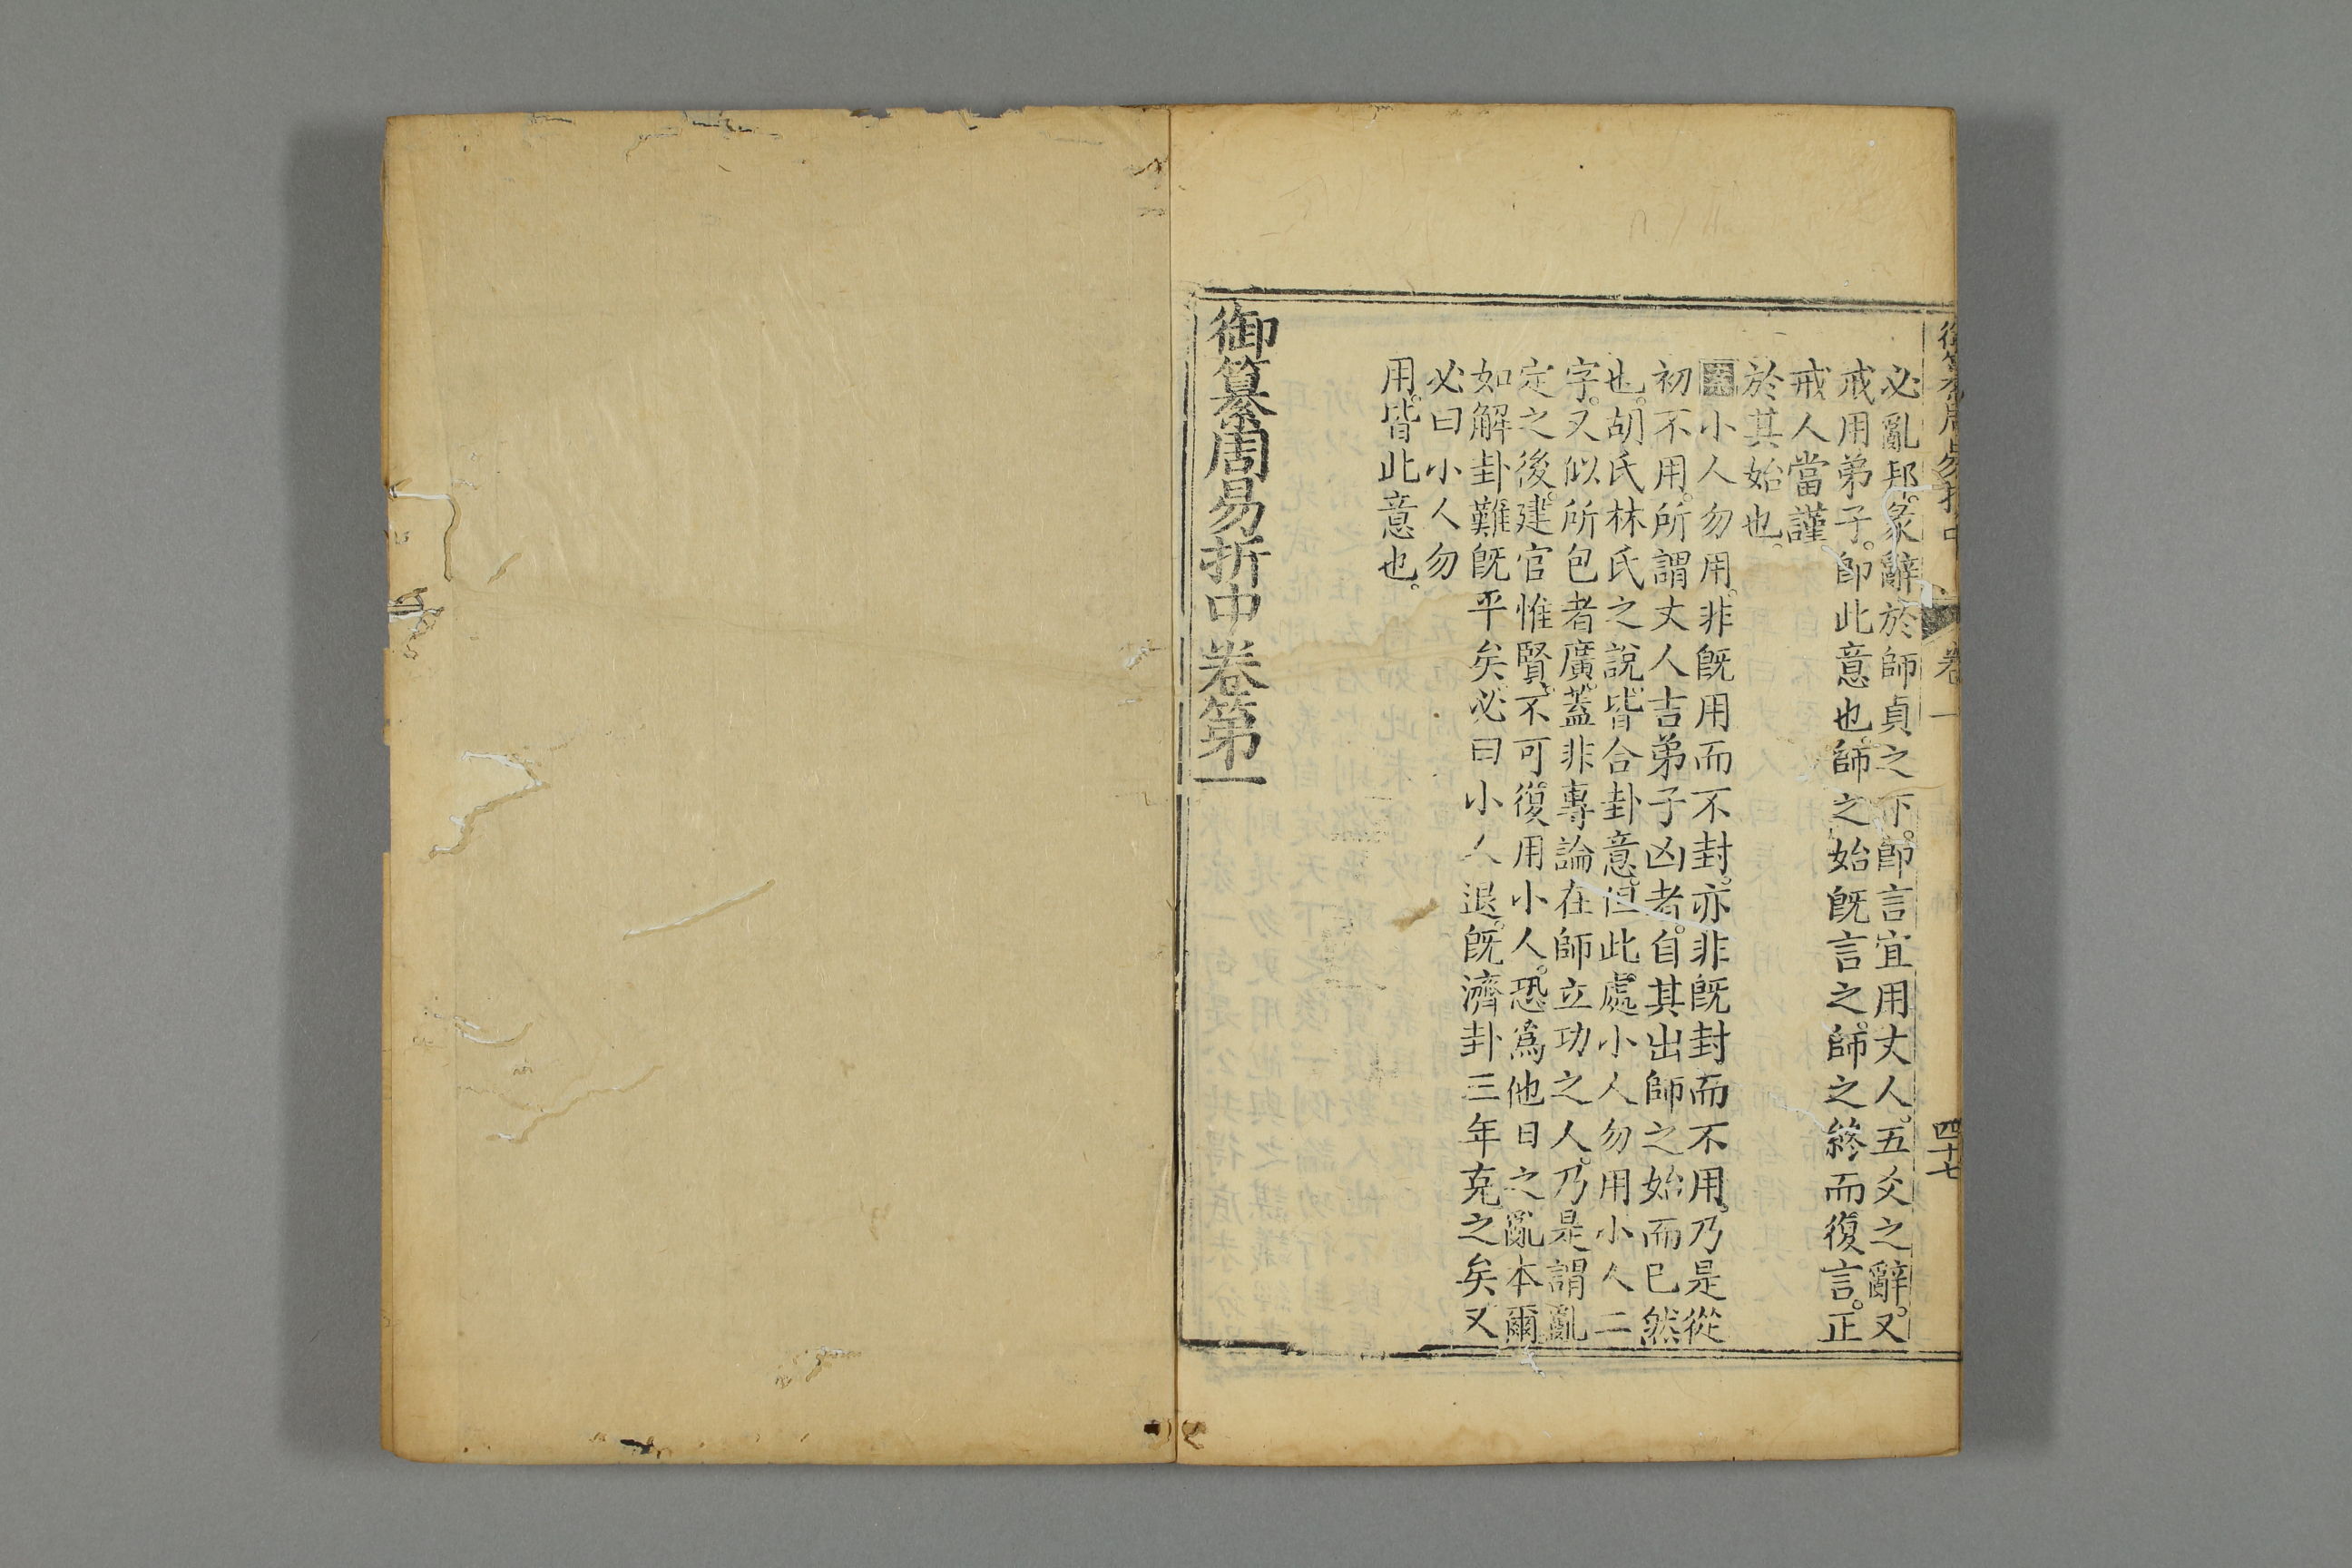 必亂邦。彖辭於師貞之下。即言宜用丈人。五爻之辭。又
戒用弟子。即此意也。師之始既言之。師之終而復言。正
戒人當謹
於其始也。
小人勿用。非既用而不封。亦非既封而不用。乃是從
初不用。所謂丈人吉弟子凶者。自其出師之始而已然
也。胡氏林氏之說。皆合卦意。但此處小人勿用小人二
字。又似所包者廣。蓋非專論在師立功之人。乃是謂亂
定之後。建官惟賢。不可復用小人。恐為他日之亂本爾
如解卦難既平矣。必曰小人退。既濟卦三年克之矣又
必曰小人勿
用。皆此意也。
御纂周易折中卷第一
卷一
四十七